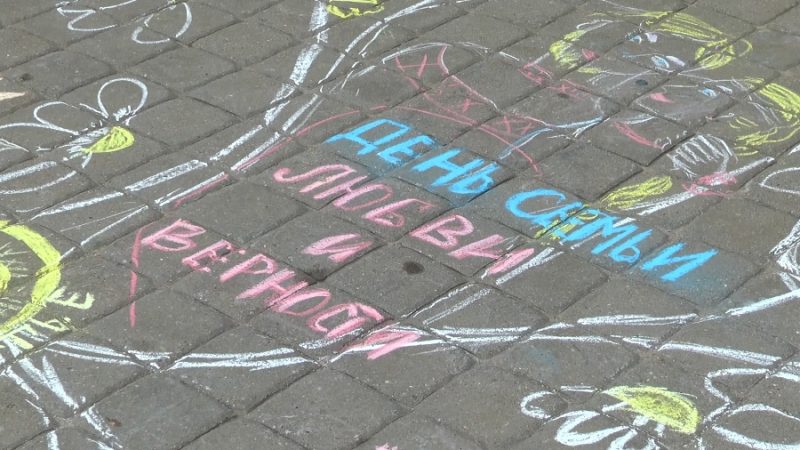 ДЕНЬ СЕМЬИ
ЛЮБВИ
И
ВЕРНОСТИ